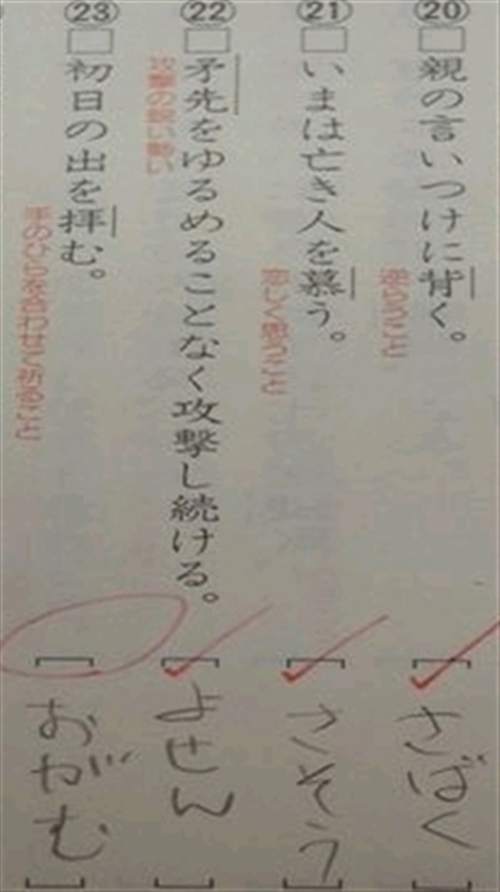 ⑳
親の言いつけに背く。
逆らうこと
さばく
㉑
いまは亡き人を慕う。
恋しく思うこと
さそう
㉒
矛先をゆるめることなく攻撃し続ける。
攻撃の鋭い勢い
よせん
㉓
初日の出を拝む。
手のひらを合わせて祈ること
おがむ